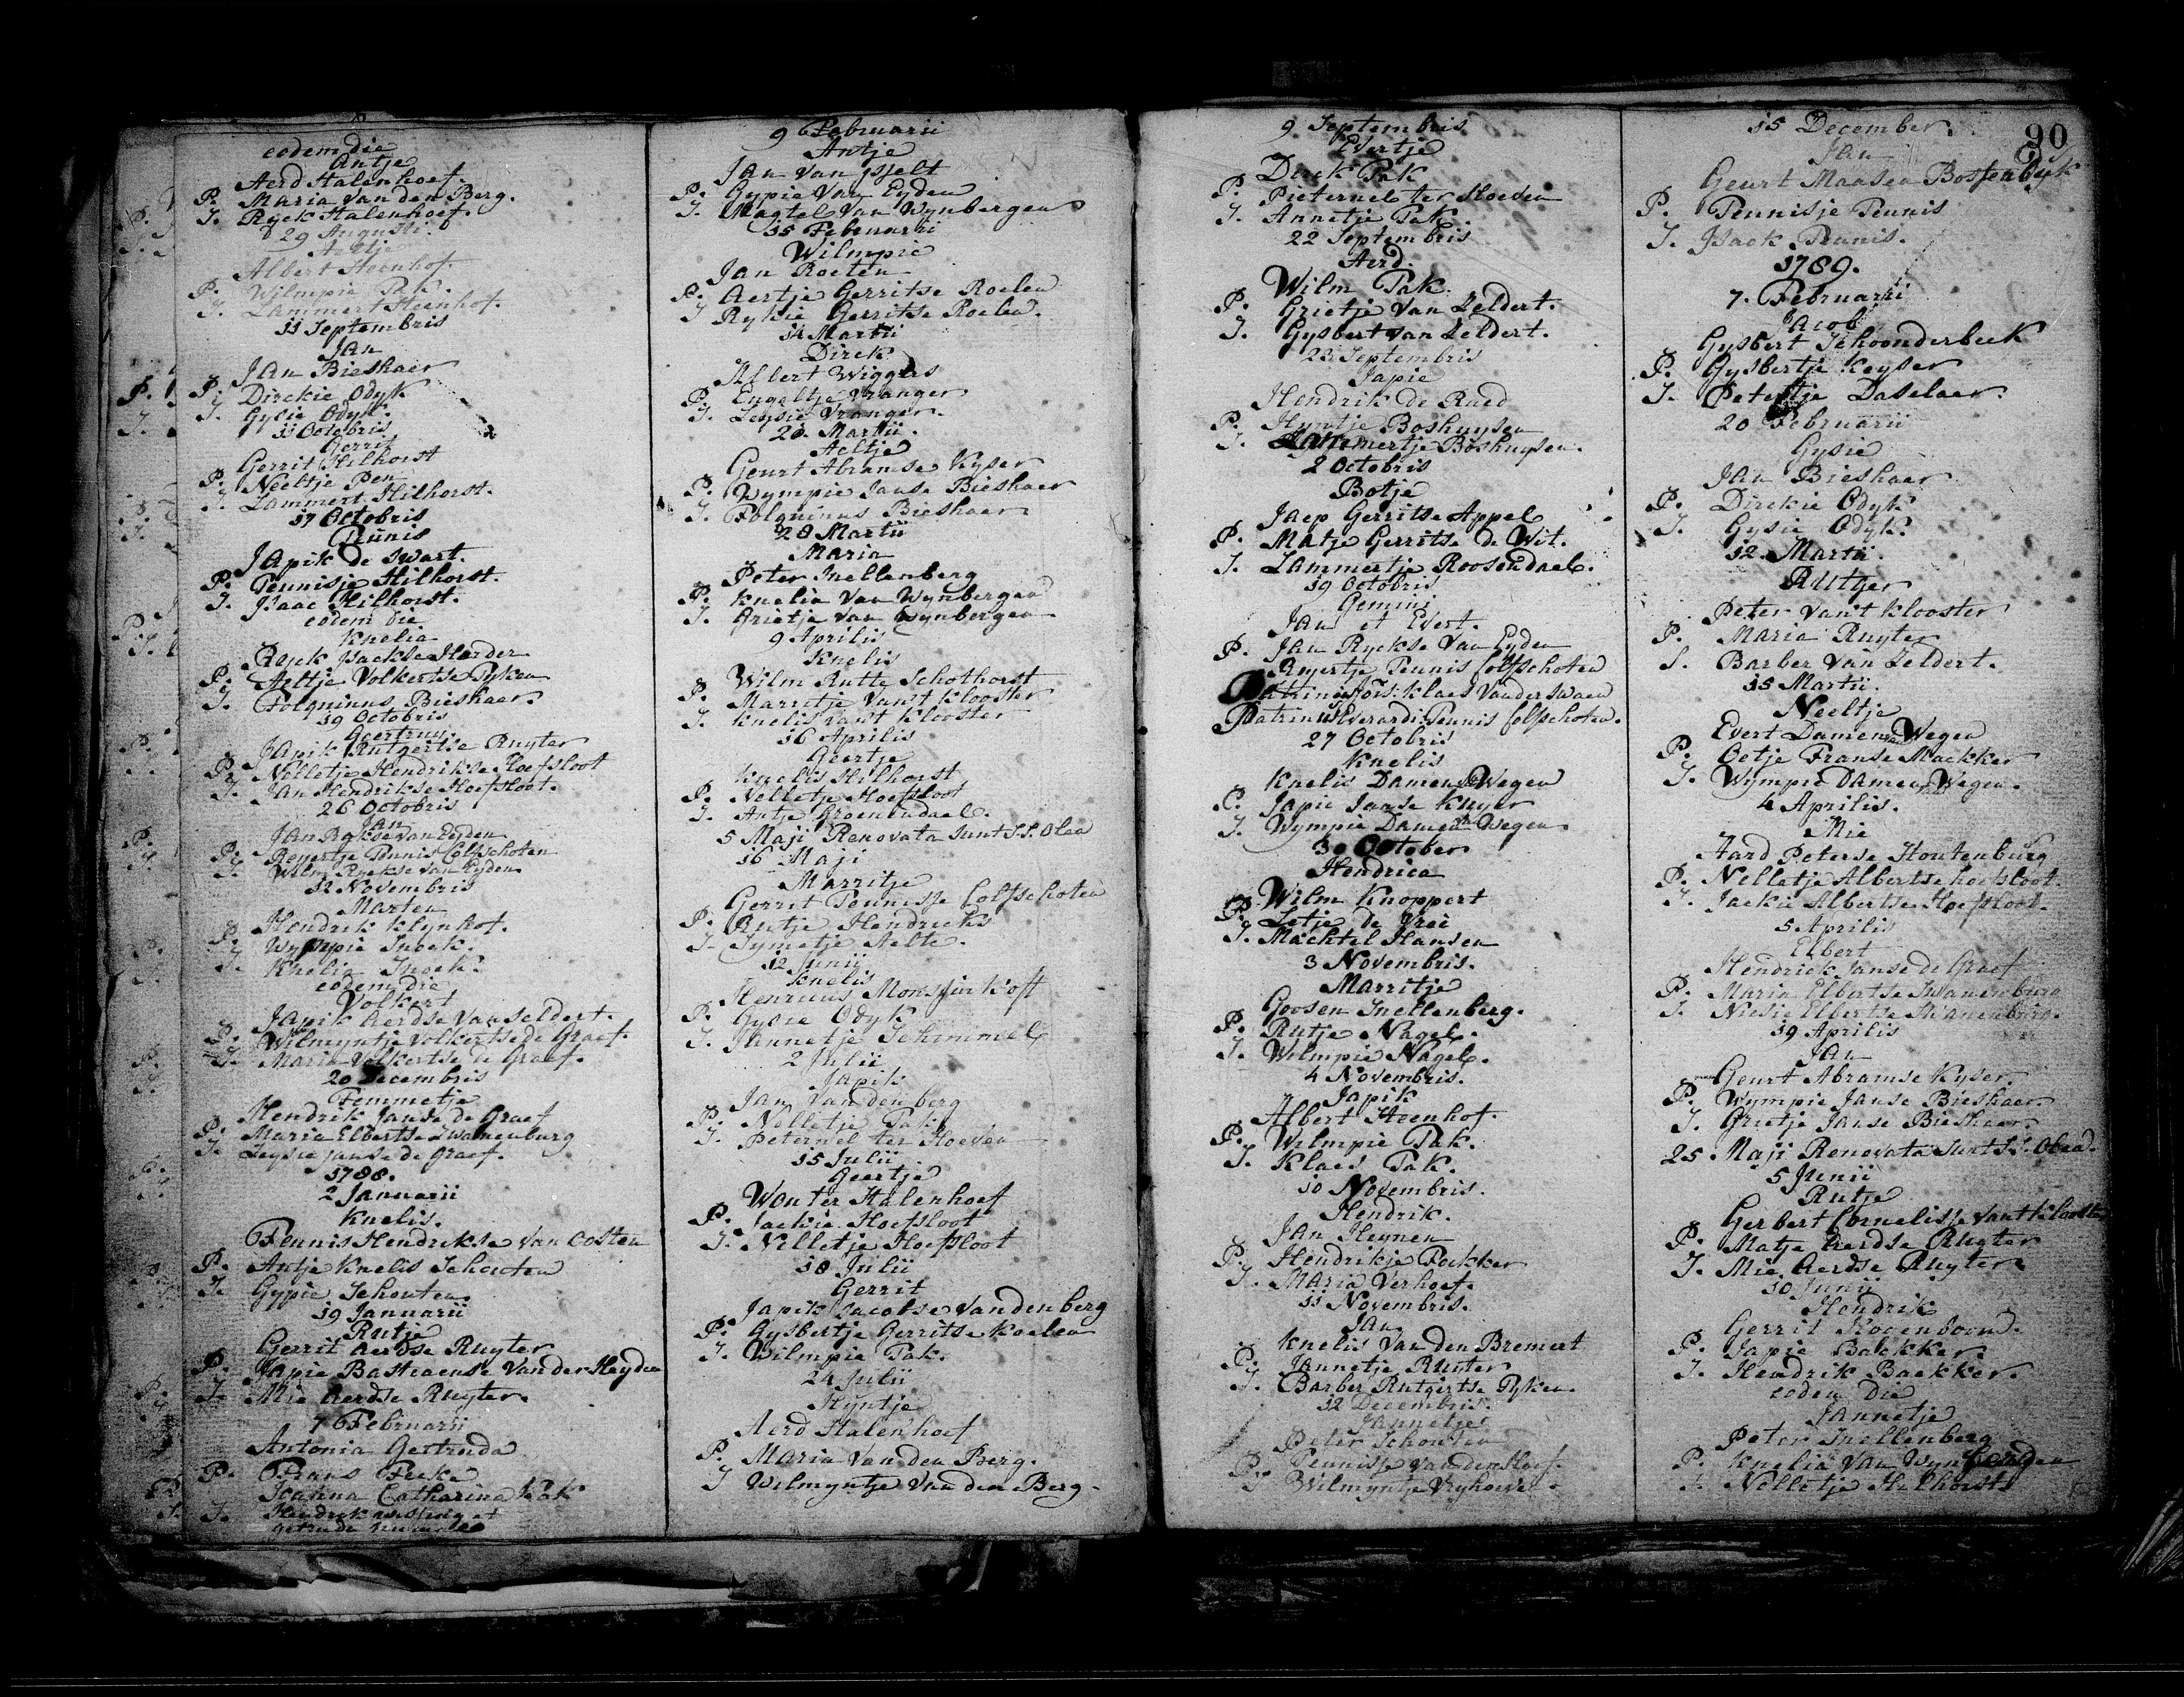 eodem die
Antje
Aerd Halenhoef.
P. Maria Van den Berg.
T. Ryck Halenhoef.
29 Augusti.
Aeltje
Albert Hoenhof.
P. Wilmpie Tak.
T. Lammert Hoenhof.
11 Septembris
Jan
Jan Bieshaer
P. Dirckie Odyk
T. Gysie Odyk.
11 Octobris
Gerrit
Gerrit Hilhorst
P. Neeltje Pen
T. Lammert Hilhorst.
17 Octobris
Tunis
Japik de Swart.
P. Teunisje Hilhorst.
T. Isaac Hilhorst.
eodem die
Knelia
Ryck Isackse Harder
P. Aeltje Volkertse Tyken
T. Folquinus Bieshaer.
19 Octobris
Geertruy.
Japik Rutgertse Ruyter
P. Nelletje Hendrikse Hoefsloot
T. Jan Hendrikse Hoefsloot.
26 Octobris
Jan
Jan Rykse van Eyden
P. Reyertje Teunis Colfschoten
T. Wilm Ryckse van Eyden
12 Novembris
Marten
Hendrik Klynhof.
P. Wympie Inoek.
T. Knelia Inoek.
eodem die
Volkert
Japik Aerdse Van Seldert.
P. Wilmyntje Volkertse de Graef.
T. Maria Volkertse de Graef.
20 Decembris
Femmetje
Hendrik Janse de Graef
P. Maria Elbertse Swanenburg
T. Leysie Janse de Graef.
1788.
2 Januarii
Knelis.
Teunis Hendrikse Van Oosten
P. Antje Knelis Schouten
T. Gypie Schouten
19 Januarii
Rutje
Gerrit Aerdse Ruyter
P. Japie Bastiaense Van der Heyden
T. Mie Aerdse Ruyter.
7 Februarii
Antonia Gertruda
P. Frans Feeke
Joanna Catharina Kok
T. Hendrik wessing et
getruda
9 Februarii
Antje
Jan Van Ysselt
P. Gypie Van Eyden
T. Magtel Van Wynbergen
15 Februarii
Wilmpie
Jan Roeten
P. Aertje Gerritse Roelen
T. Rykie Gerritse Roelen.
14 Martii
Dirck
Albert Wiggers
P. Engeltje Vranger
T. Leysie Vranger.
20. Martii.
Aeltje
Geurt Abramse Kyser
P. Wympie Janse Bieshaer
T. Folquinus Bieshaer
28 Martii
Maria
Peter Snellenberg
P. Knelia Van Wynbergen
T. Grietje Van Wynbergen
9 Aprilis
Knelis
Wilm Rutte Schothorst
P. Marritje Van't Klooster
T. Knelis van't Klooster
16 Aprilis
Geertje
Knelis Hilhorst
P. Nelletje Hoefsloot
T. Antje Groenendael.
5 Maji Renovata sunt S.S. Olea
16 Maji
Marritje
Gerrit Teunisse Colfschoten
P. Rutje Hendricks
T. Tymetje Aelte.
12 Junii
Knelis
Henricus Monsjin Kost
P. Gysie Odyk
T. Jannetje Schimmel
2 Julii
Japik
Jan Van den berg
P. Nelletje Tak
T. Peternel ter Hoeven
15 Julii
Geertje
Wouter Halenhoef
P. Jackie Hoefsloot
T. Nelletje Hoefsloot
18 Julii
Gerrit
Japik Jacobse Van den berg
P. Gysbertje Gerritse Koelen
T. Wilmpie Tak.
24 Julii
Hyntje
Aerd Halenhoef
P. Maria Van den Berg.
T Wilmyntje Van den Berg.
9 Septembris
Evertje
Dirck Tak
P. Pieternel ter Hoeven
T. Annetje Tak
22 Septembris
Aerd.
Wilm Tak.
P. Grietje Van Zeldert.
T. Gysbert van Zeldert.
23 Septembris
Japie
Hendrik de Raed
P. Hyntje Boshuysen
T. Lammertje Boshuysen.
2 Octobris
Botje
Jaep Gerritse Appel
P. Matje Gerritse de Wit.
T. Lammertje Roosendael.
19 Octobris
Gemini
Jan et Evert.
P. Jan Ryckse Van Eyden
Reyertje Teunis Colfschoten
Patrinus Jois: Klaes Vander Swaen
Patrinus Everardi: Teunis Colfschoten.
27 Octobris
Knelis
Knelis Damen de Wegen
P. Japie Janse Kuyer
T. Wympie Damen van Wegen.
30 October
Hendrica
Wilm Knoppert
P. Letje de Vrei
T. Machtel Hansen
3 Novembris.
Marritje
Goosen Snellenberg.
P. Rutje Nagel
T. Wilmpie Nagel.
4 Novembris.
Japik
Albert Hoenhof.
P. Wilmpie Tak.
T. Klaes Tak.
10 Novembris.
Hendrik.
Jan Heynen
P. Hendrikje Packker
T. Maria Verhoef.
11 Novembris.
Jan
Knelis Van den Bremert
P. Jannetje Ruyter
T. Barber Rutgertse Tyken.
12 Decembris.
Jannetje
Peter Schouten
P. Teunisje Van der Hoef.
T. Wilmyntje Vryhoeve.
90
15 December.
Jan
Geurt Maasen Bosfendyk
P. Teunisje Teunis
T. Isack Teunis.
1789.
7. Februarii
Jacob
Gysbert Schoonderbeek
P. Gysbertje Keyser
T. Petertje Daselaer.
20 Februarii
Gysie
Jan Bieshaer
P. Dirckie Odyk
T. Gysie Odyk.
12. Martii.
Rutger
Peter Van't Klooster
P. Maria Ruyter
S. Barber Van Zeldert.
15 Martii.
Neeltje
Evert Damen van Wegen
P. Oetje Franse Mackker
T. Wympie Damen van Wegen.
4 Aprilis.
Mie
Aard Peterse Houtenburg
P. Nelletje Albertse hoefsloot.
T. Jackie Albertse Hoefsloot.
5 Aprilis
Elbert
Hendrick Janse de Graef
P. Maria Elbertse Swanenburg
T. Niesie Elbertse Swanenburg.
19 Aprilis
Jan
Geurt Abramse Kyser.
P. Wympie Janse Bieshaer.
T. Grietje Janse Bieshaer.
25. Maji Renovata sunt S.S. Olea.
5 Junii
Rutje
Gerbert Cornelisse Vant Klooster
P. Matje Aerdse Ruyter
T. Mie Aerdse Ruyter.
10 Junii
Hendrik
Gerrit Hogenboom.
P. Japie Backker.
T. Hendrik Backker.
eodem Die
Jannetje
Peter Snellenberg
P. Knelia Van Wynbergen
T. Nelletje Hilhorst